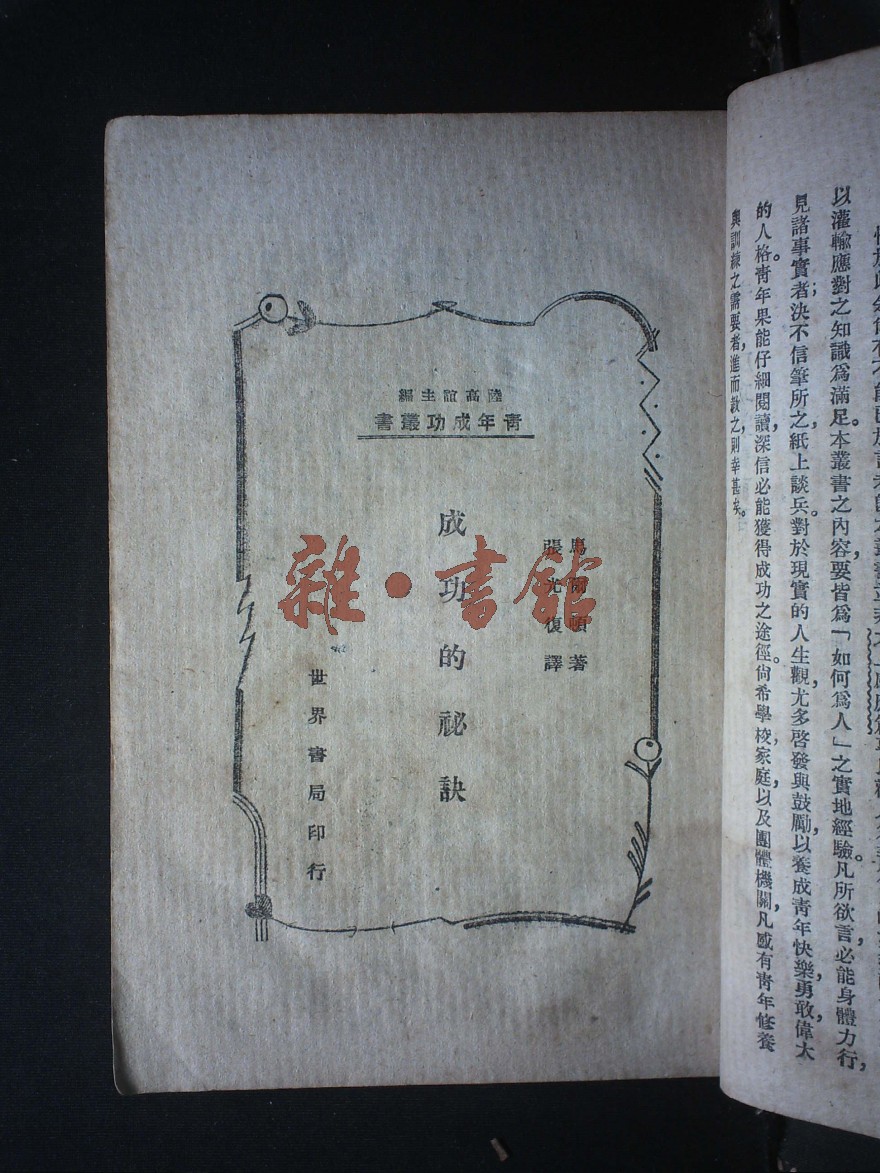 以灌輸應對之知識爲滿足。本叢書之內容，要皆爲「如何爲人」之實地經驗。凡所欲言，必能身體力行，
見諸事實者；決不信筆所之，紙上談兵。對於現實的人生觀，尤多啓發與鼓勵，以養成青年快樂，勇敢，偉大
的人格。青年果能仔細閱讀，深信必能獲得成功之途徑。尙希學校，家庭，以及團體機關，凡感有青年修養
與訓練之需要者，進而敎之，則幸甚矣。
陸高誼主編
青年成功叢書
馬爾頓著
張光復譯
成功的祕訣
世界書局印行
雜·書館